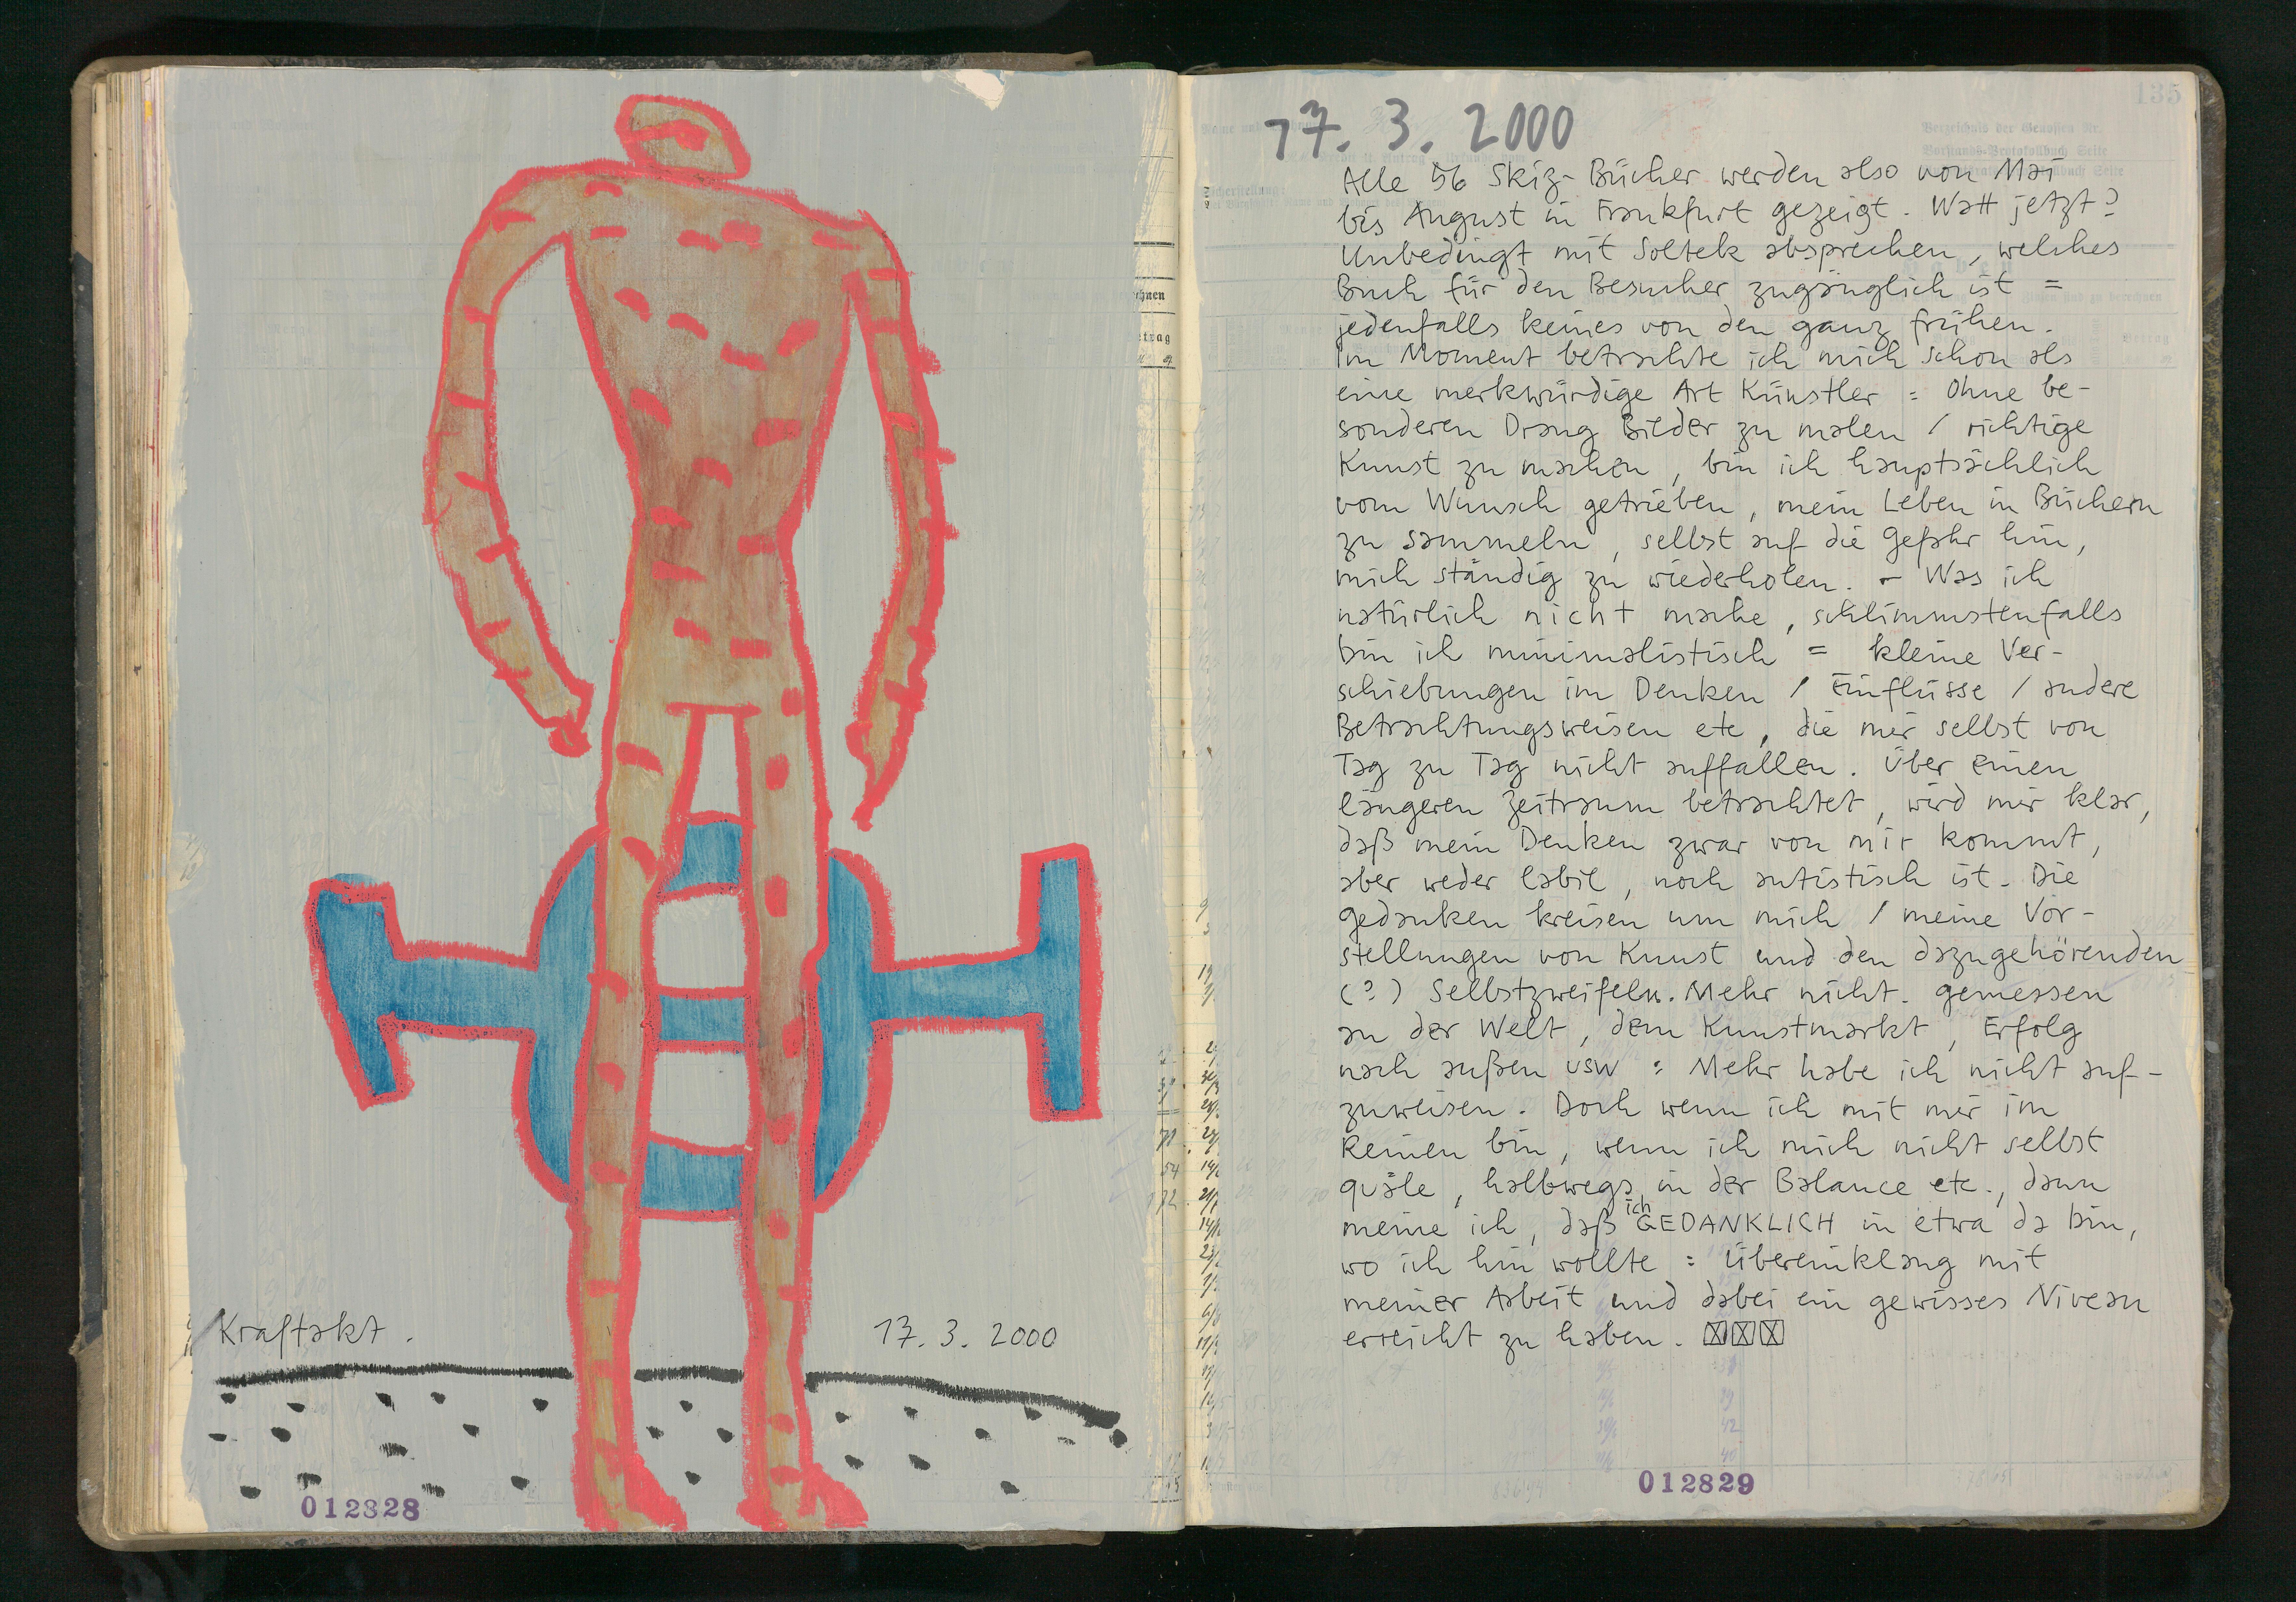 Kraftakt.
17.3.2000
012828
135
17.3.2000
Alle 56 Skiz-Bücher werden also von Mai
bis August in Frankfurt gezeigt. Watt jetzt?
Unbedingt mit Soltek absprechen, welches
Buch für den Besucher zugänglich ist =
jedenfalls keines von den ganz frühen.
Im Moment betrachte ich mich schon als
eine merkwürdige Art Künstler = Ohne be-
sonderen Drang Bilder zu malen / richtige
Kunst zu machen, bin ich hauptsächlich
vom Wunsch getrieben, mein Leben in Büchern
zu sammeln, selbst auf die Gefahr hin,
mich ständig zu wiederholen. - Was ich
natürlich nicht mache, schlimmstenfalls
bin ich minimalistisch = kleine Ver-
schiebungen im Denken / Einflüsse / andere
Betrachtungsweisen etc, die mir selbst von
Tag zu Tag nicht auffallen. Über einen
längeren Zeitraum betrachtet, wird mir klar,
daß mein Denken zwar von mir kommt,
aber weder labil, noch autistisch ist. Die
Gedanken kreisen um mich / meine Vor-
stellungen von Kunst und den dazugehörenden
(?) Selbstzweifeln. Mehr nicht. Gemessen
an der Welt, dem Kunstmarkt, Erfolg
nach außen usw : Mehr habe ich nicht auf-
zuweisen. Doch wenn ich mit mir im
Reinen bin, wenn ich mich nicht selbst
quäle, halbwegs in der Balance etc., dann
meine ich, daß ich GEDANKLICH in etwa da bin,
wo ich hin wollte : Übereinklang mit
meiner Arbeit und dabei ein gewisses Niveau
erreicht zu haben.
012829